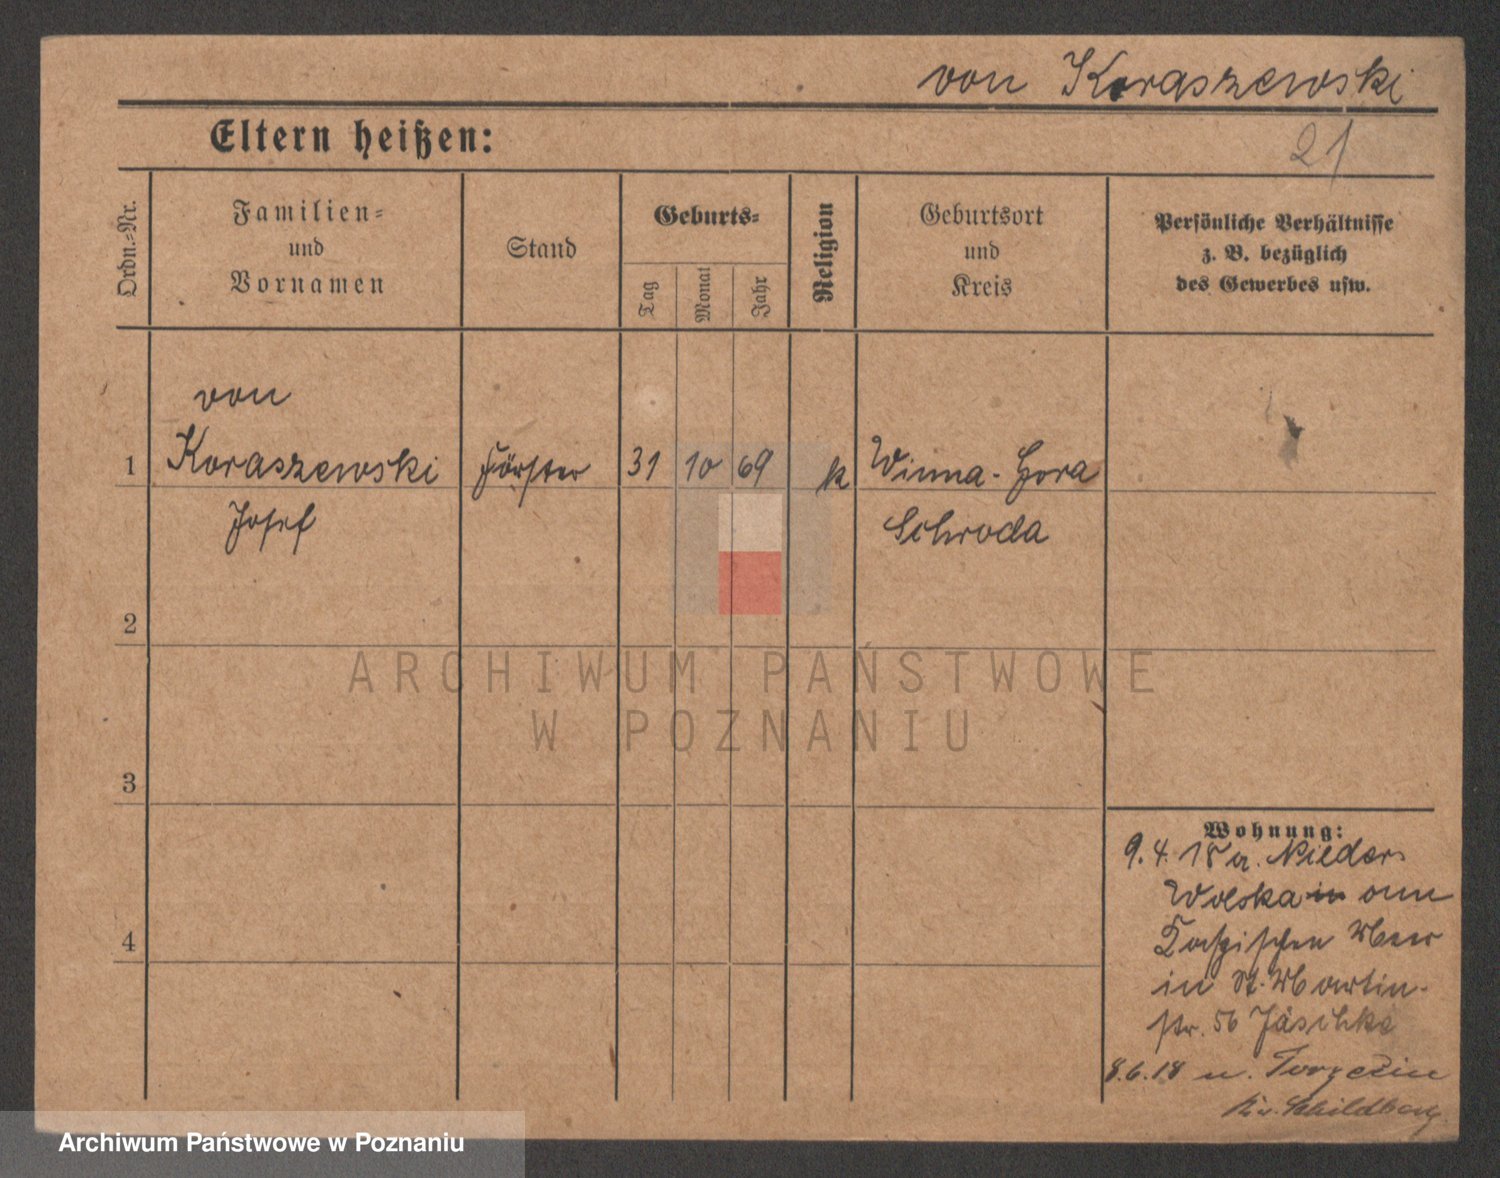 von Koraszewski
21
Eltern heißen:
Ordn.-Nr.
Familien-
und
Vornamen
Stand
Geburts-
Tag
Monat
Jahr
Religion
Geburtsort
und
Kreis
Persönliche Verhältnisse
z. B. bezüglich
des Gewerbes usw.
von
1 Koraszewski Förster 31 10 69 k Winna-Gora
Josef Schroda
2
ARCHIWUM PAŃSTWOWE
W POZNANIU
3
Wohnung:
9.4.18 a. Nieder
Woeska in
Kaspischen Meer
4
in St. Martin-
str. 56 Jäschke
8.6.18 n.
Kr. Schildberg
Archiwum Państwowe w Poznaniu